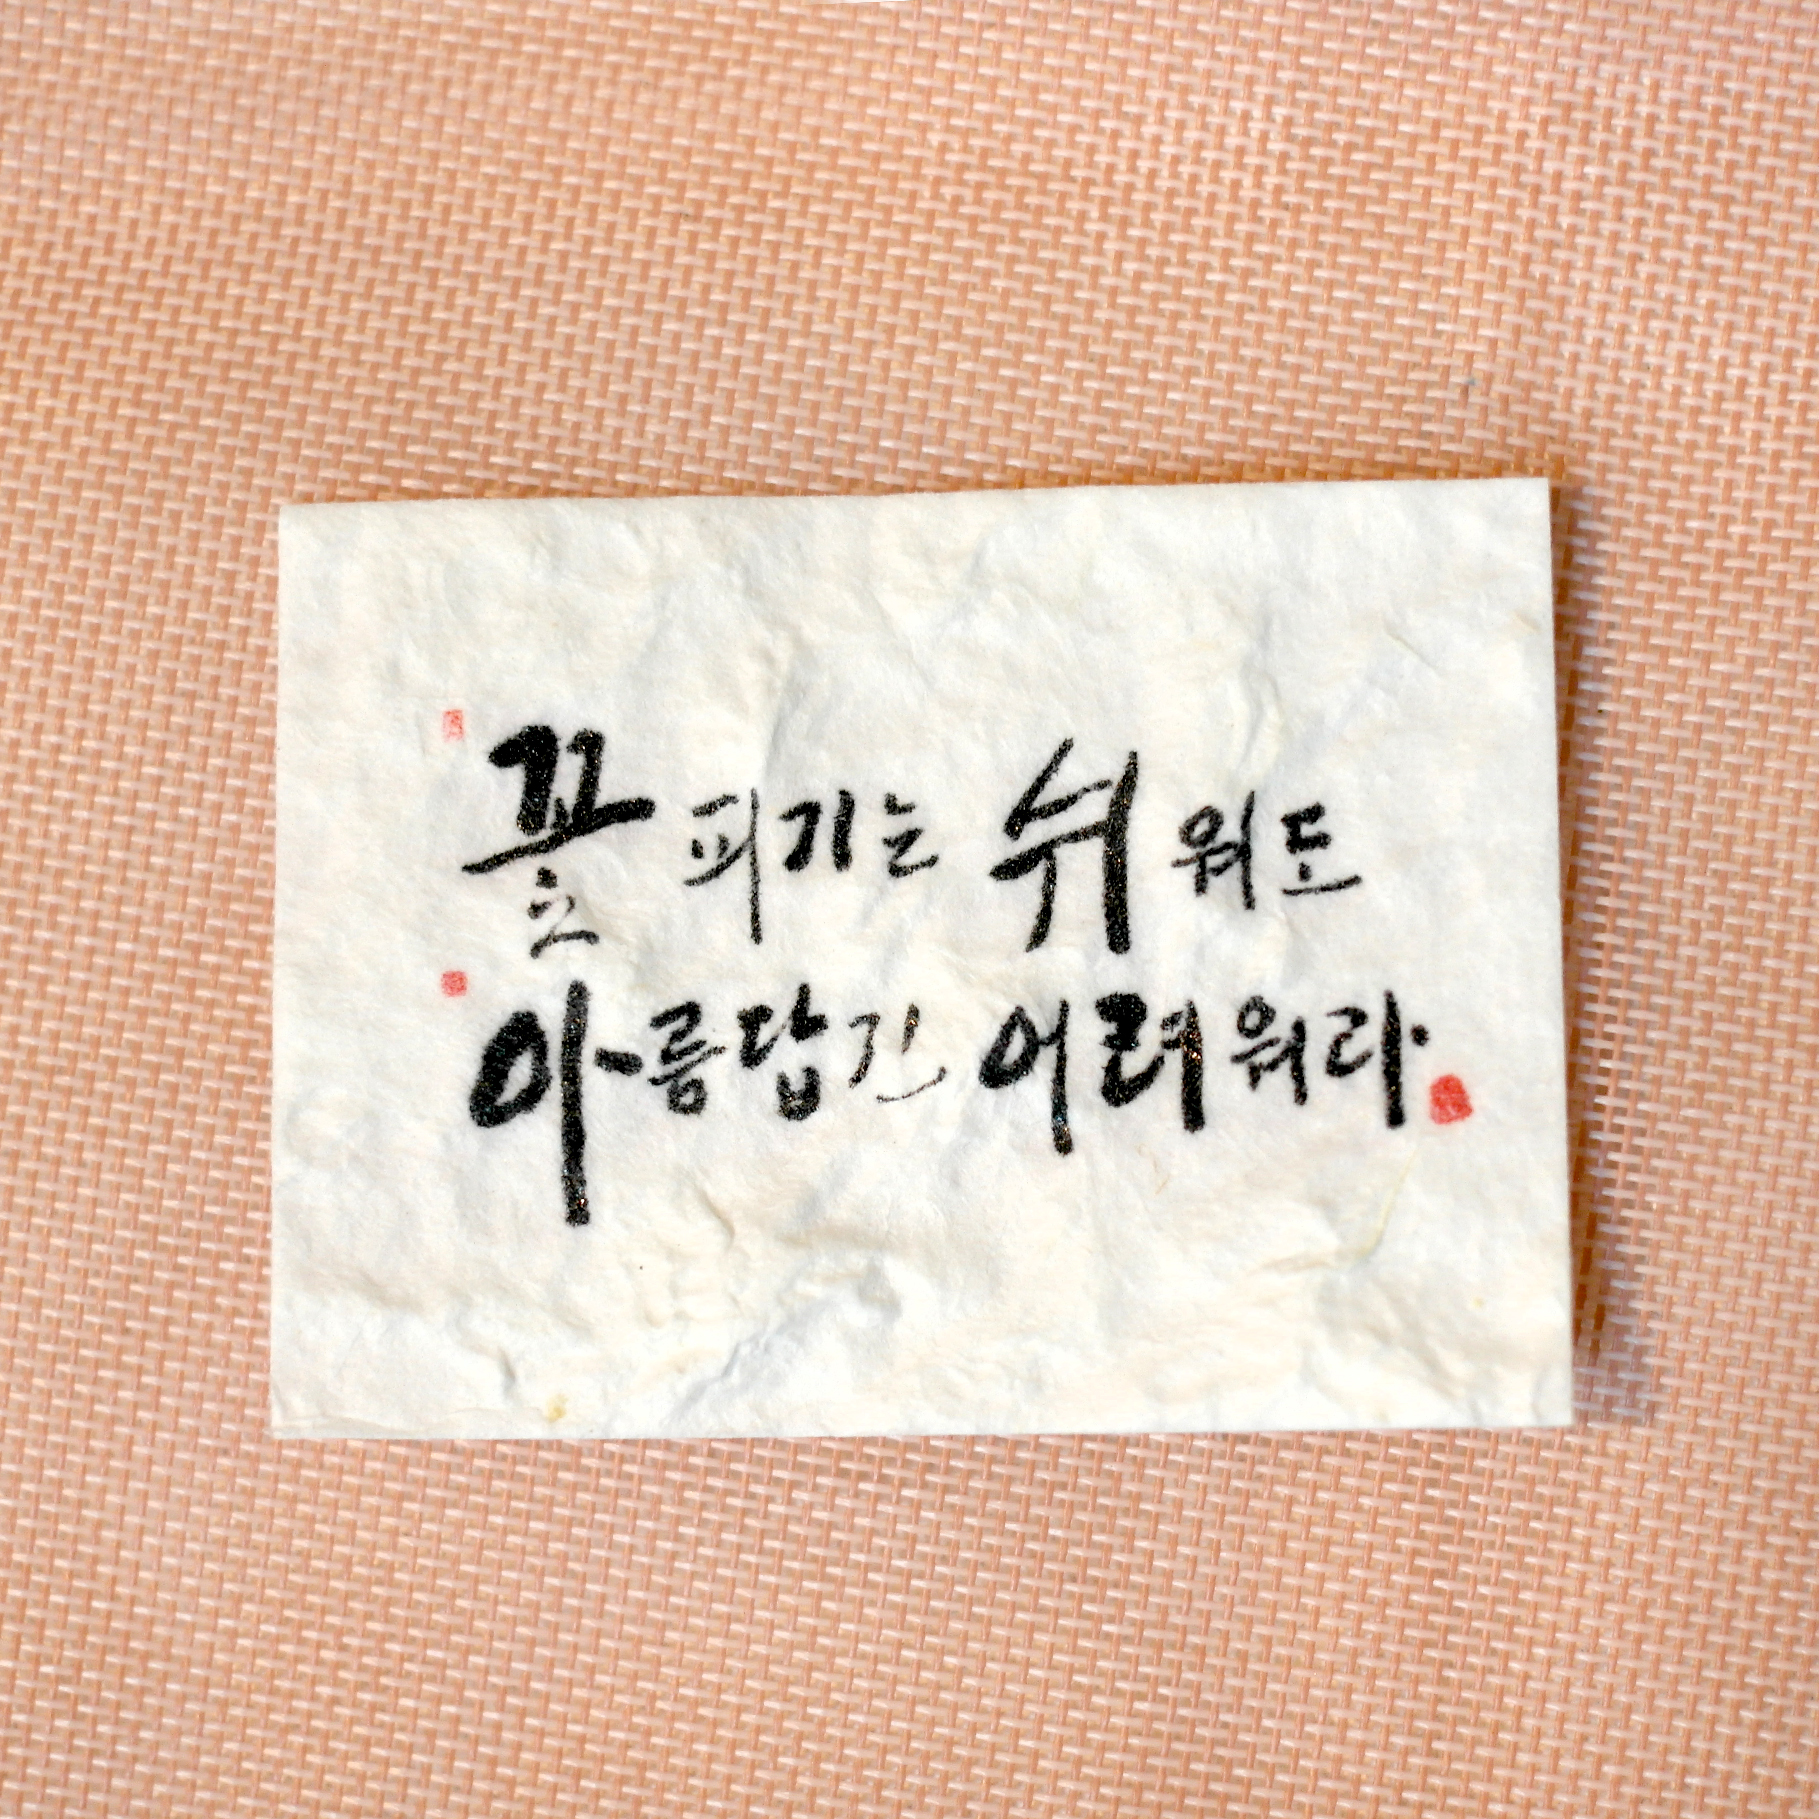 꽃 피기는 쉬워도
아름답긴 어려워라